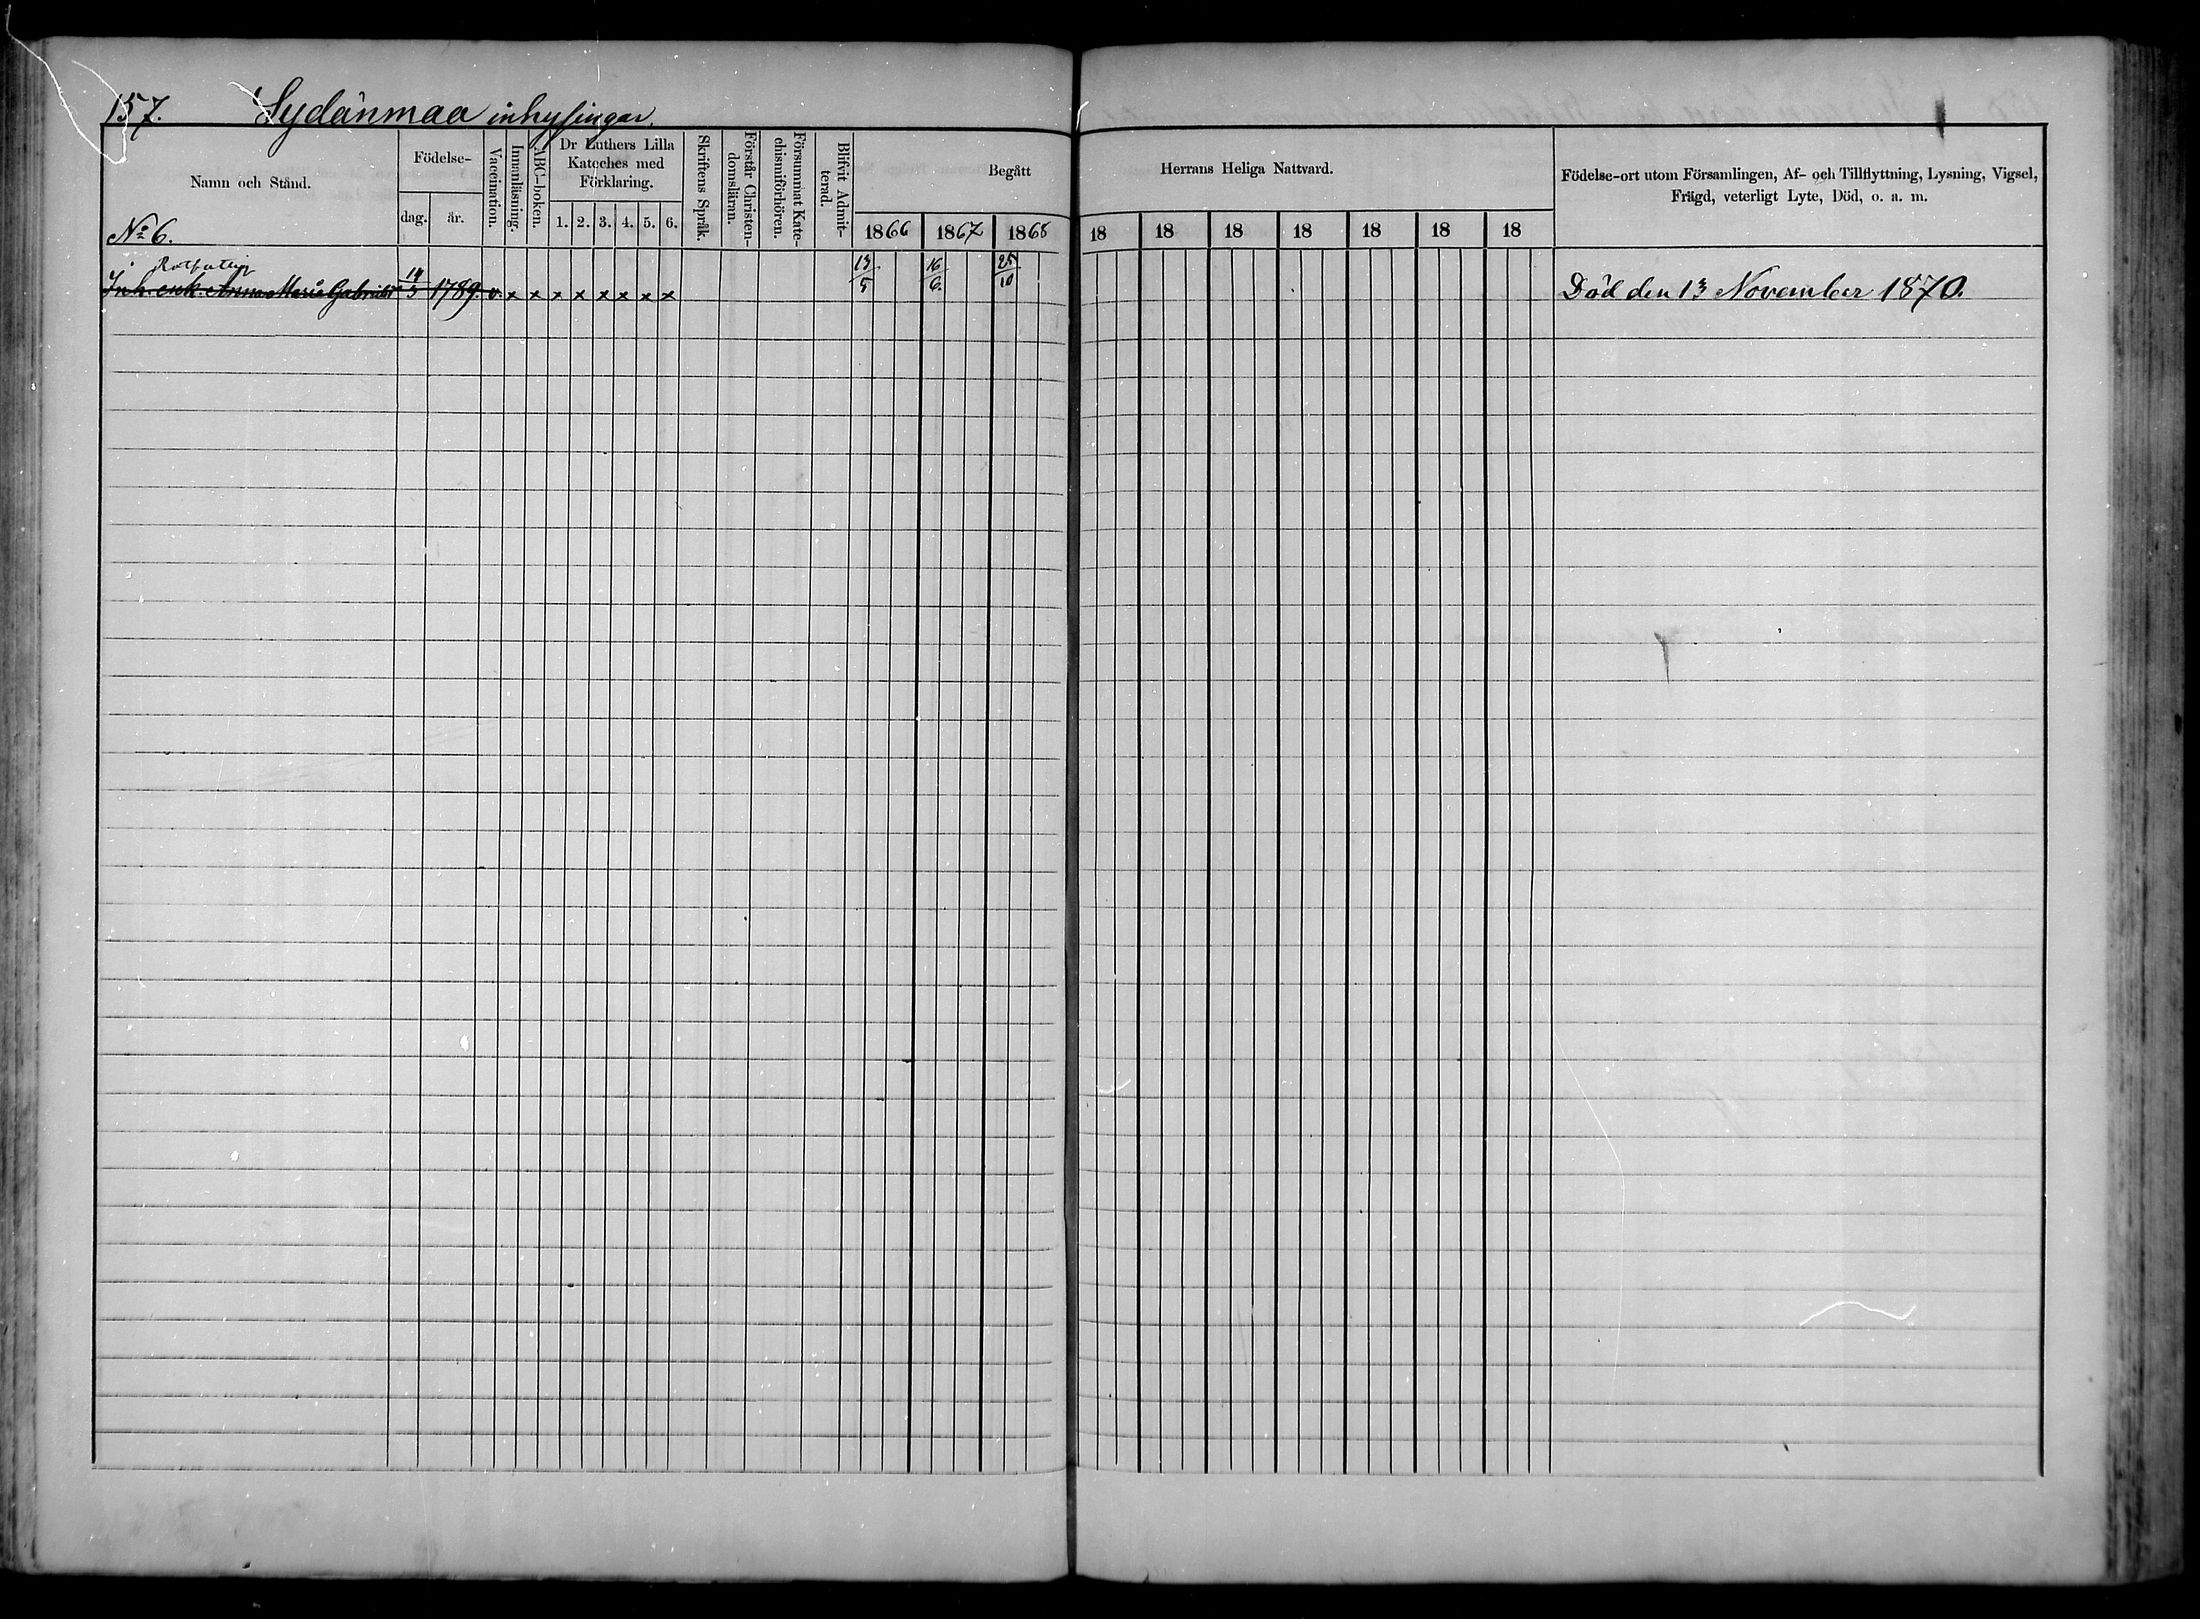 157. Sydänmaa inhysingar.
Namn och Stånd.
Födelse-
dag. år.
Vaccination.
Innanläsning.
ABC-boken.
Dr Luthers Lilla
Kateches med
Förklaring.
1. 2. 3. 4. 5. 6.
Skriftens Språk.
Förstår Christen-
domsläran.
Försummat Kate-
chismiförhören.
Blifvit Admit-
terad.
Begått Herrans Heliga Nattvard.
1866 1867 1868 18 18 18 18 18 18 18
Födelse-ort utom Församlingen, Af- och Tillflyttning, Lysning, Vigsel,
Frägd, veterligt Lyte, Död, o. a. m.
No 6.
Inh. enk. Anna Maria Gabrielsr 14/3 1789. v. x x x x x x x x 13/5 16/6. 25/10 Död den 13 November 1870.